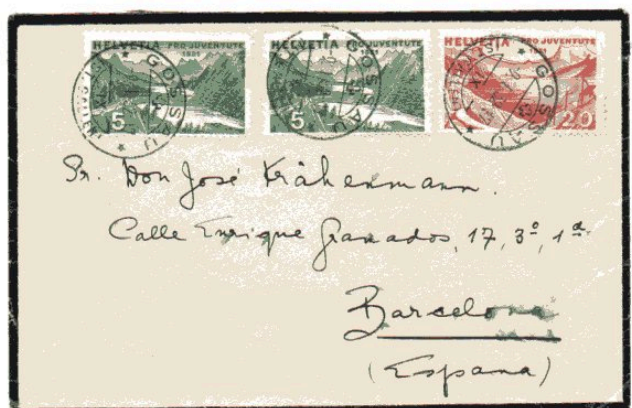 HELVETIA PRO JUVENTUTE 1931 5
HELVETIA PRO JUVENTUTE 1931 5
HELVETIA PRO JUVENTUTE 1931 20
GOSSAU
GOSSAU
GOSSAU
Sr. Don José Krähenmann.
Calle Enrique Granados, 17, 3º, 1ª.
Barcelona
(España)